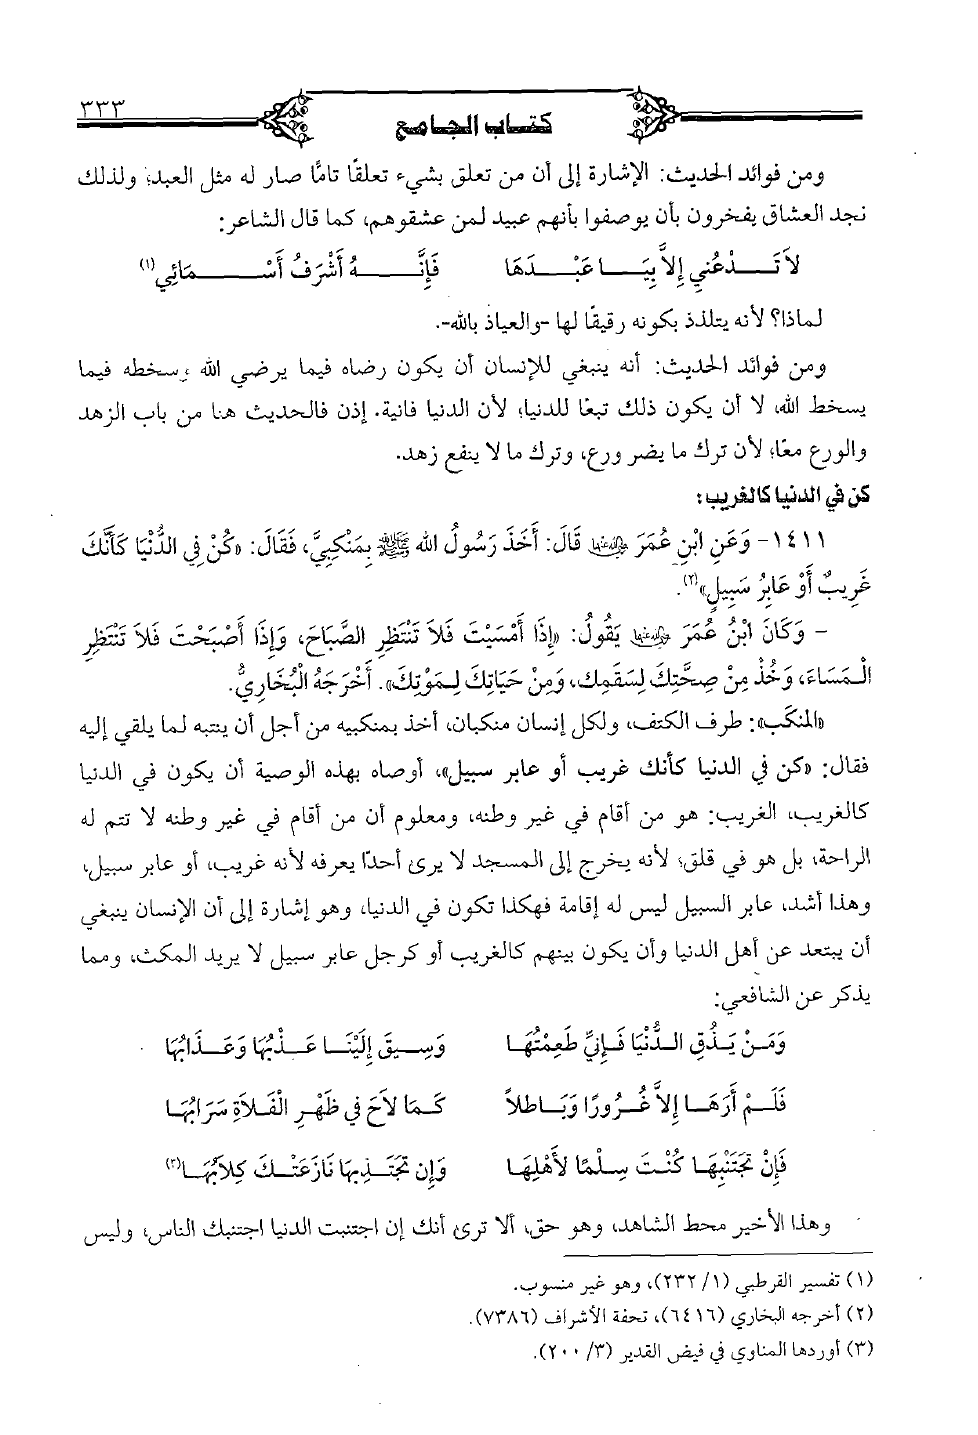 ٣٣٣
كتاب الجامع
ومن فوائد الحديث: الإشارة إلى أن من تعلق بشيء تعلقًا تامًّا صار له مثل العبد؛ ولذلك
نجد العشاق يفخرون بأن يوصفوا بأنهم عبيد لمن عشقوهم، كما قال الشاعر:
لاَ تَدْعُنِي إِلاَّ بِيَا عَبْدَهَا فَإِنَّهُ أَشْرَفُ أَسْمَائِي(١)
لماذا؟ لأنه يتلذذ بكونه رقيقًا لها -والعياذ بالله-.
ومن فوائد الحديث: أنه ينبغي للإنسان أن يكون رضاه فيما يرضي الله وسخطه فيما
يسخط الله، لا أن يكون ذلك تبعًا للدنيا؛ لأن الدنيا فانية. إذن فالحديث هنا من باب الزهد
والورع معًا؛ لأن ترك ما يضر ورع، وترك ما لا ينفع زهد.
كن في الدنيا كالغريب:
١٤١١- وَعَنِ ابْنِ عُمَرَ رضي الله عنهما قَالَ: أَخَذَ رَسُولُ الله ﷺ بِمَنْكِبِيَّ، فَقَالَ: «كُنْ فِي الدُّنْيَا كَأَنَّكَ
غَرِيبٌ أَوْ عَابِرُ سَبِيلٍ»(٢).
- وَكَانَ ابْنُ عُمَرَ رضي الله عنهما يَقُولُ: «إِذَا أَمْسَيْتَ فَلاَ تَنْتَظِرِ الصَّبَاحَ، وَإِذَا أَصْبَحْتَ فَلاَ تَنْتَظِرِ
الْمَسَاءَ، وَخُذْ مِنْ صِحَّتِكَ لِسَقَمِك، وَمِنْ حَيَاتِكَ لِمَوْتِكَ». أَخْرَجَهُ الْبُخَارِيُّ.
«المنكب»: طرف الكتف، ولكل إنسان منكبان، أخذ بمنكبيه من أجل أن ينتبه لما يلقي إليه
فقال: «كن في الدنيا كأنك غريب أو عابر سبيل»، أوصاه بهذه الوصية أن يكون في الدنيا
كالغريب، الغريب: هو من أقام في غير وطنه، ومعلوم أن من أقام في غير وطنه لا تتم له
الراحة، بل هو في قلق؛ لأنه يخرج إلى المسجد لا يرى أحدًا يعرفه لأنه غريب، أو عابر سبيل،
وهذا أشد، عابر السبيل ليس له إقامة فهكذا تكون في الدنيا، وهو إشارة إلى أن الإنسان ينبغي
أن يبتعد عن أهل الدنيا وأن يكون بينهم كالغريب أو كرجل عابر سبيل لا يريد المكث، ومما
يذكر عن الشافعي:
وَمَنْ يَذُقِ الدُّنْيَا فَإِنِّي طَعِمْتُهَا وَسِيقَ إِلَيْنَا عَذْبُهَا وَعَذَابُهَا
فَلَمْ أَرَهَا إِلاَّ غُرُورًا وَبَاطلاً كَمَا لاَحَ فِي ظَهْرِ الْفَلاَةِ سَرَابُهَا
فَإِنْ تَجْتَنِبْهَا كُنْتَ سِلْمًا لأَهْلِهَا وَإِن تَجْتَذِبهَا نَازَعَتْكَ كِلاَبُهَا(٣)
وهذا الأخير محط الشاهد، وهو حق، ألا ترى أنك إن اجتنبت الدنيا اجتنبك الناس، وليس
(١) تفسير القرطبي (١/ ٢٣٢)، وهو غير منسوب.
(٢) أخرجه البخاري (٦٤١٦)، تحفة الأشراف (٧٣٨٦).
(٣) أوردها المناوي في فيض القدير (٣/ ٢٠٠).